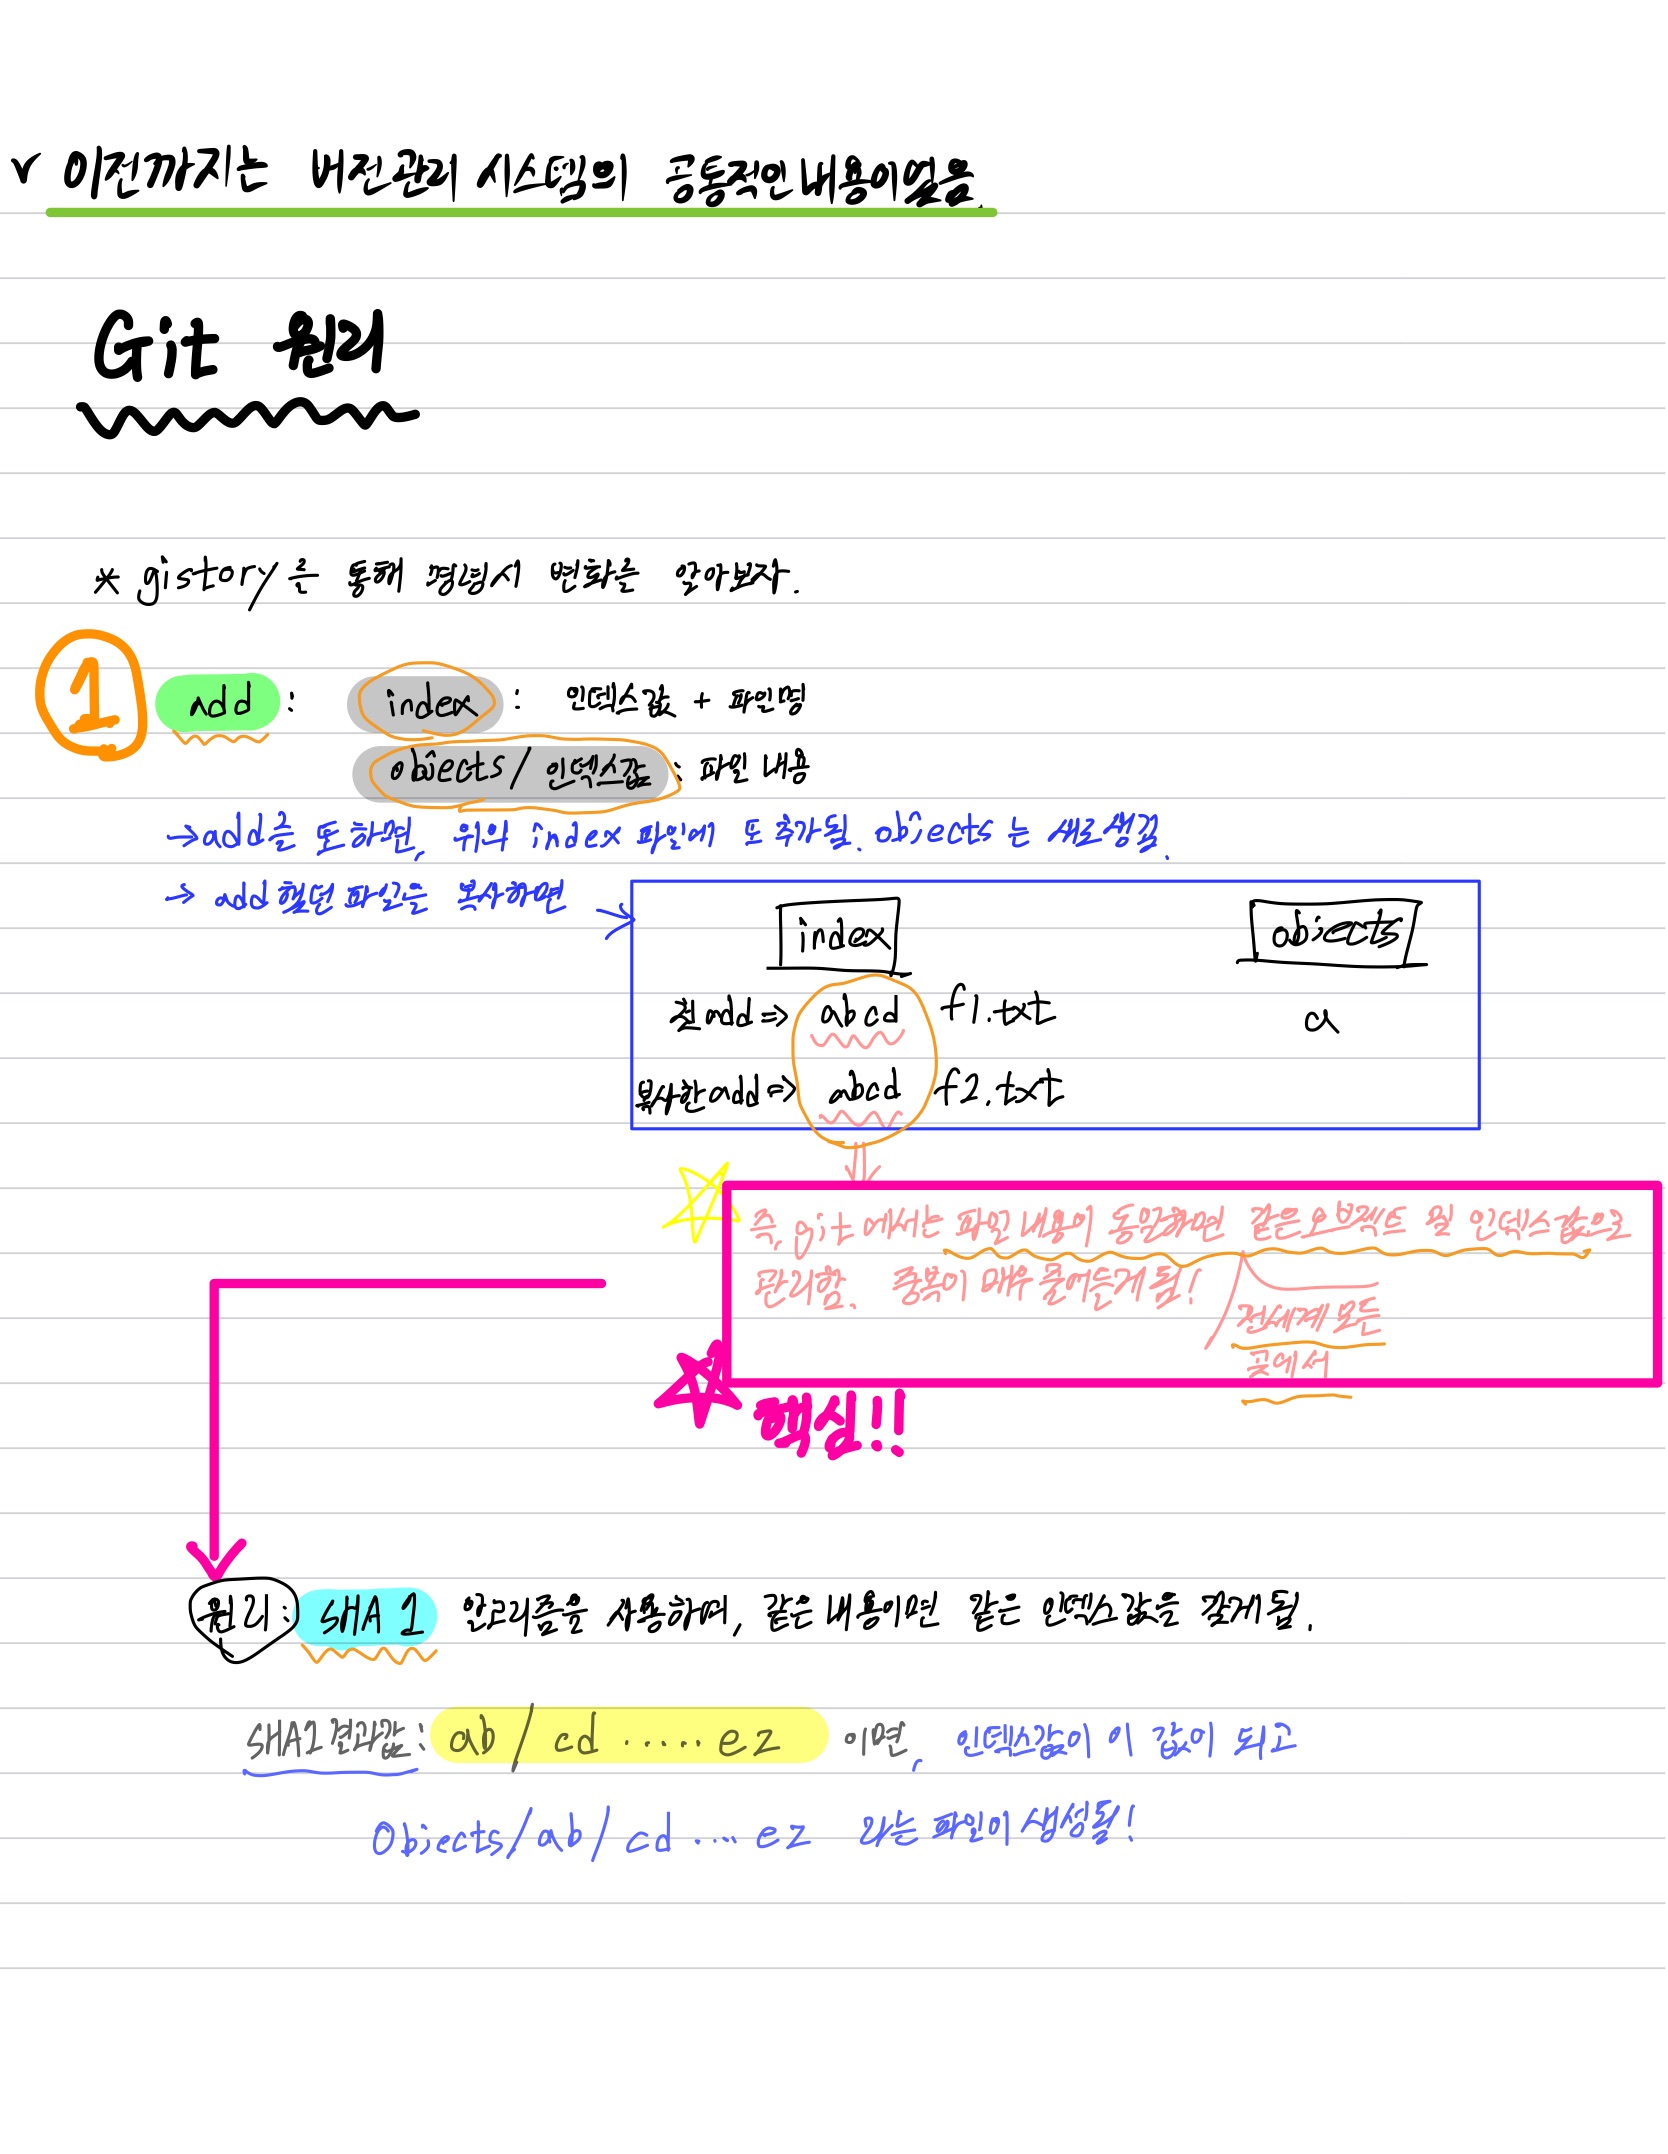 v 이전까지는 버전관리 시스템의 공통적인 내용이였음.
Git 원리
* gistory를 통해 명령시 변화를 알아보자.
1 add : index : 인덱스값 + 파일명
objects / 인덱스값 : 파일 내용
→ add를 또 하면, 위의 index 파일에 또 추가됨. objects는 새로생김.
→ add 했던 파일을 복사하면 →
index objects
첫 add ⇒ abcd f1.txt a
복사한 add ⇒ abcd f2.txt
즉, git에서는 파일 내용이 동일하면 같은 오브젝트 및 인덱스값으로
관리함. 중복이 매우 줄어들게 됨!
전세계 모든
곳에서
핵심!!
원리: SHA 1 알고리즘을 사용하며, 같은 내용이면 같은 인덱스 값을 갖게 됨.
SHA1 결과값: ab / cd ..... ez 이면, 인덱스값이 이 값이 되고
Objects/ab/cd .... ez 라는 파일이 생성됨!